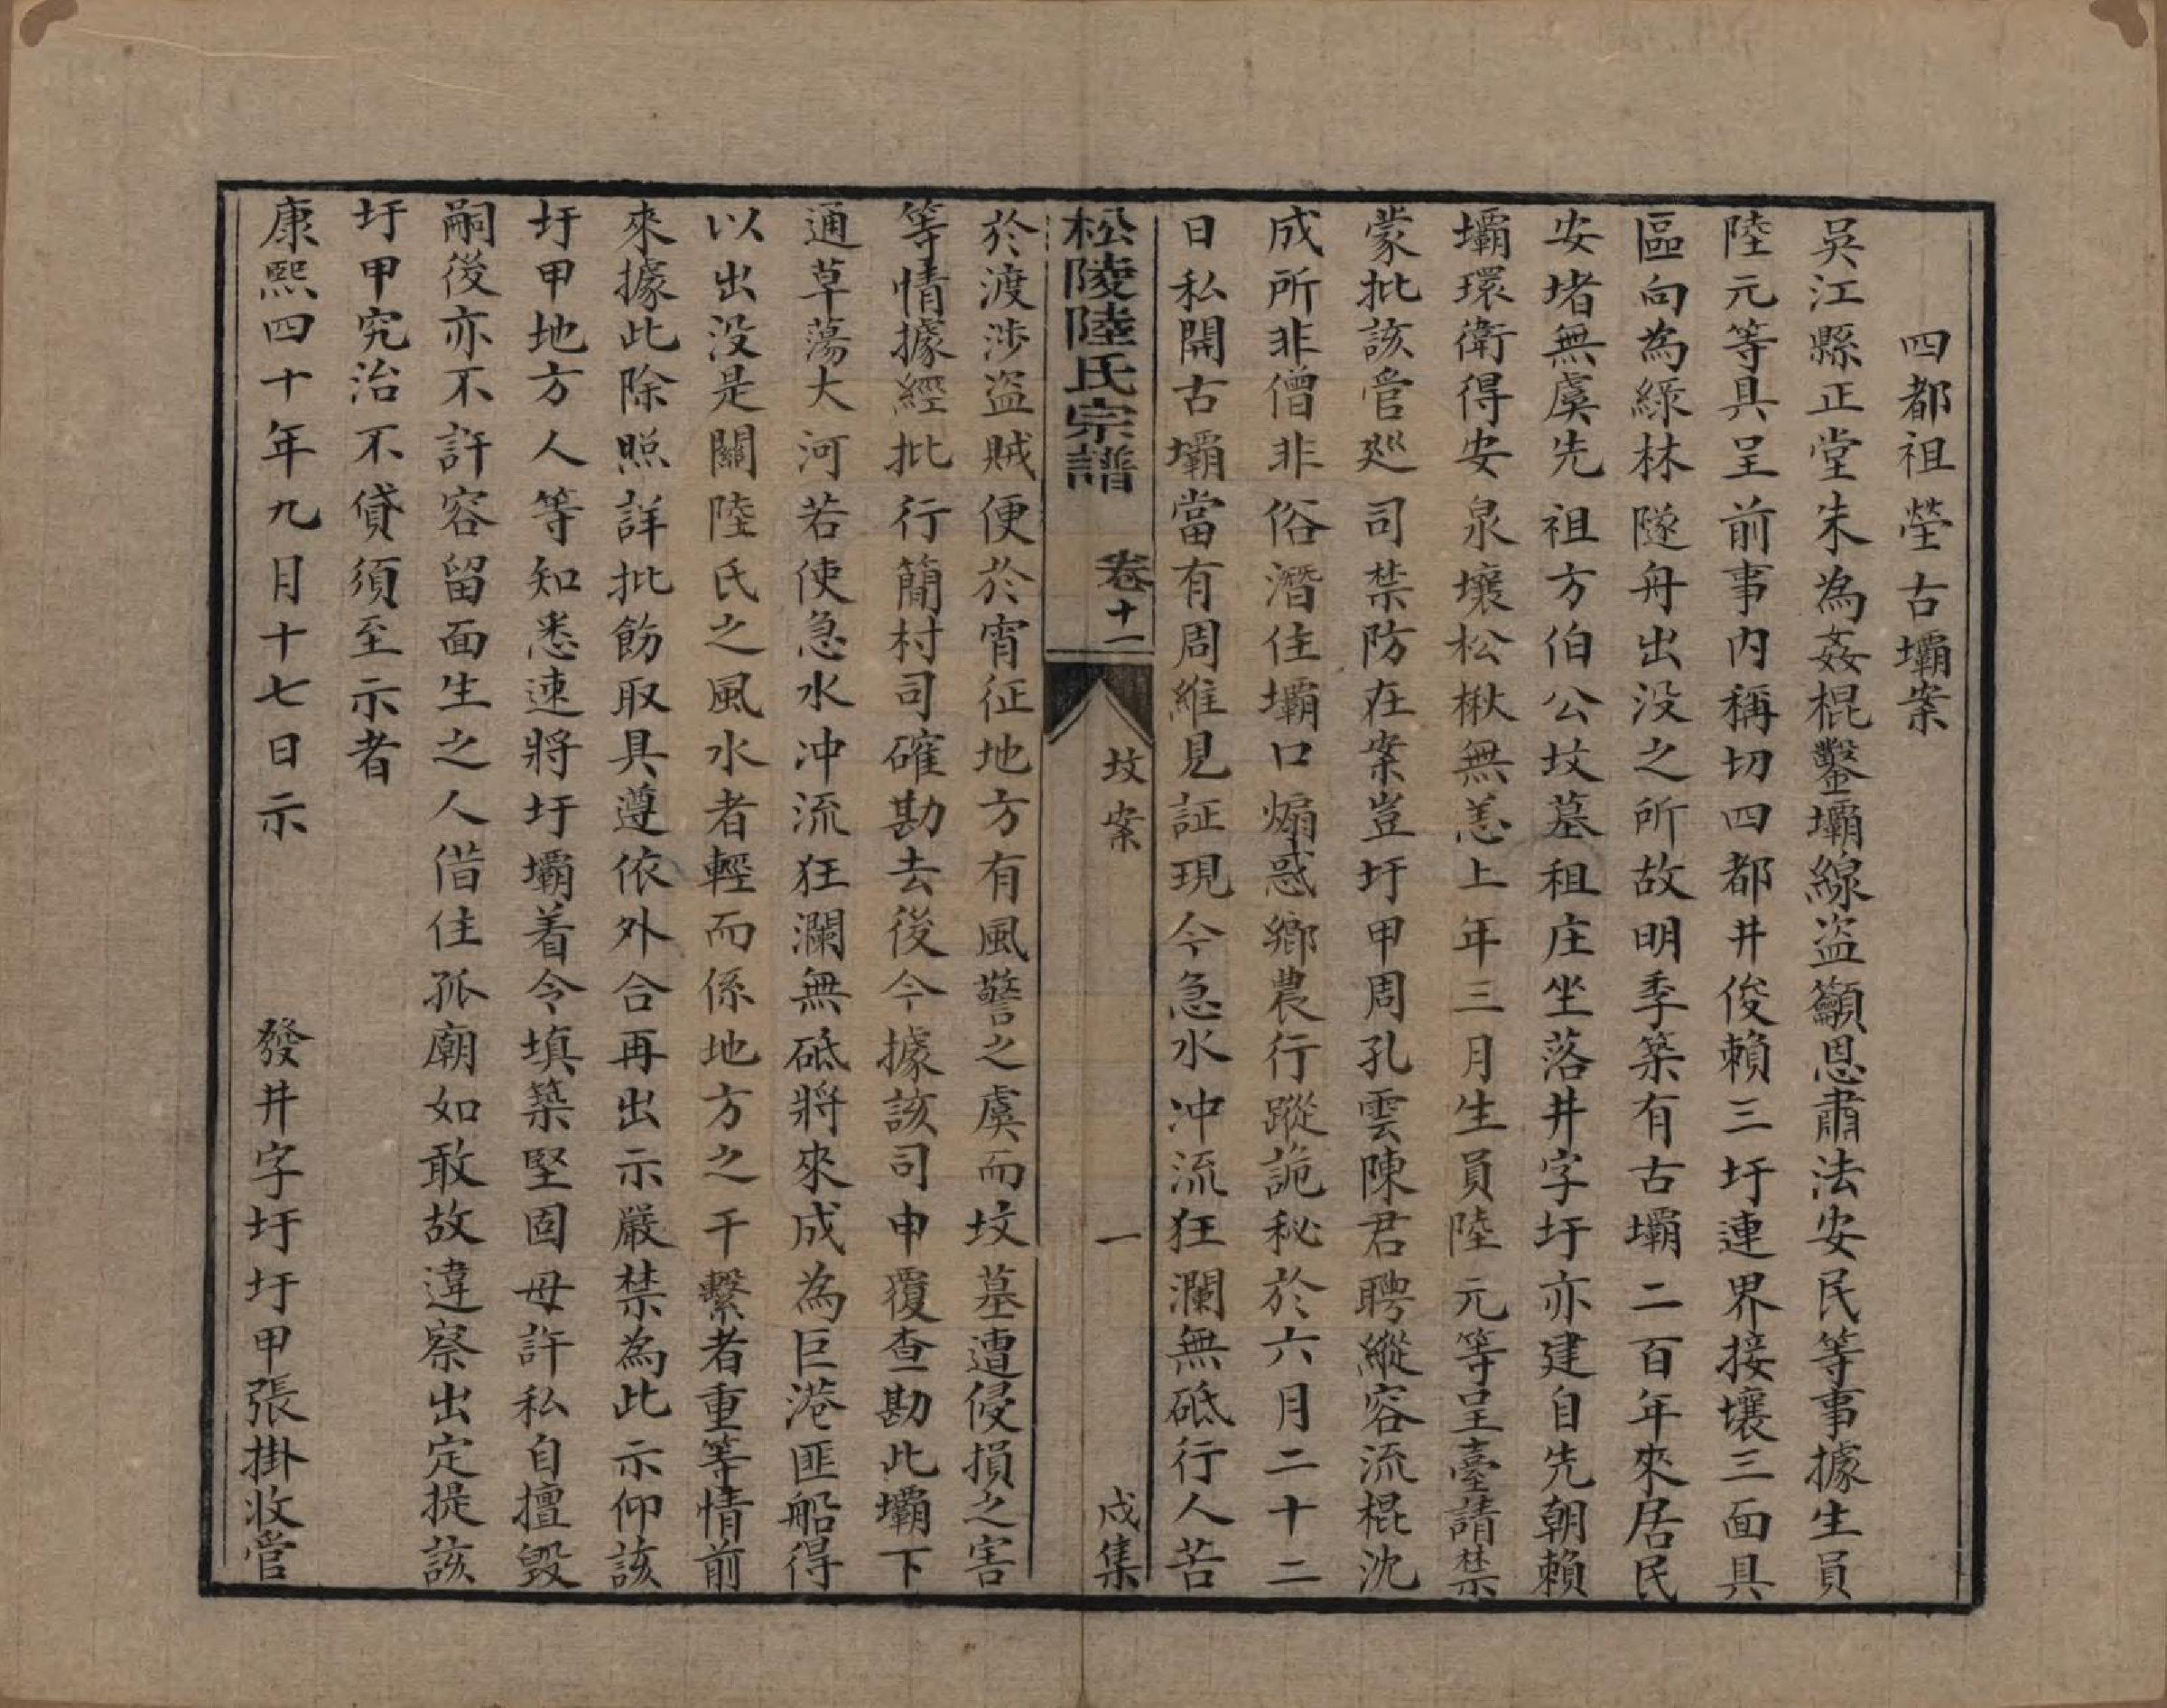 四都祖塋古壩案
吳江縣正堂朱為姦棍鑿壩線盜籲恩肅法安民等事據生員
陸元等具呈前事內稱切四都井俊賴三圩連界接壤三面具
區向為綠林隧舟出没之所故明季築有古壩二百年來居民
安堵無虞先祖方伯公坟墓祖庄坐落井字圩亦建自先朝賴
壩環衛得安泉壤松楸無恙上年三月生員陸元等呈臺請禁
蒙批該管廵司禁防在案豈圩甲周孔雲陳君聘縱容流棍沈
成所非僧非俗潛住壩口煽惑鄉農行蹤詭秘於六月二十二
日私開古壩當有周維見証現今急水冲流狂瀾無砥行人苦
松陵陸氏宗譜 卷十一 坟案 一 戍集
於渡涉盜賊便於宵征地方有風警之虞而坟墓遭侵損之害
等情據經批行簡村司確勘去後今據該司申覆查勘此壩下
通草蕩大河若使急水冲流狂瀾無砥將來成為巨港匪船得
以出没是關陸氏之風水者輕而係地方之干繫者重等情前
來據此除照詳批飭取具遵依外合再出示嚴禁為此示仰該
圩甲地方人等知悉速將圩壩着令填築堅固毋許私自擅毀
嗣後亦不許容留面生之人偕住孤廟如敢故違察出定提該
圩甲究治不貸須至示者
康熙四十年九月十七日示 發井字圩圩甲張掛收管